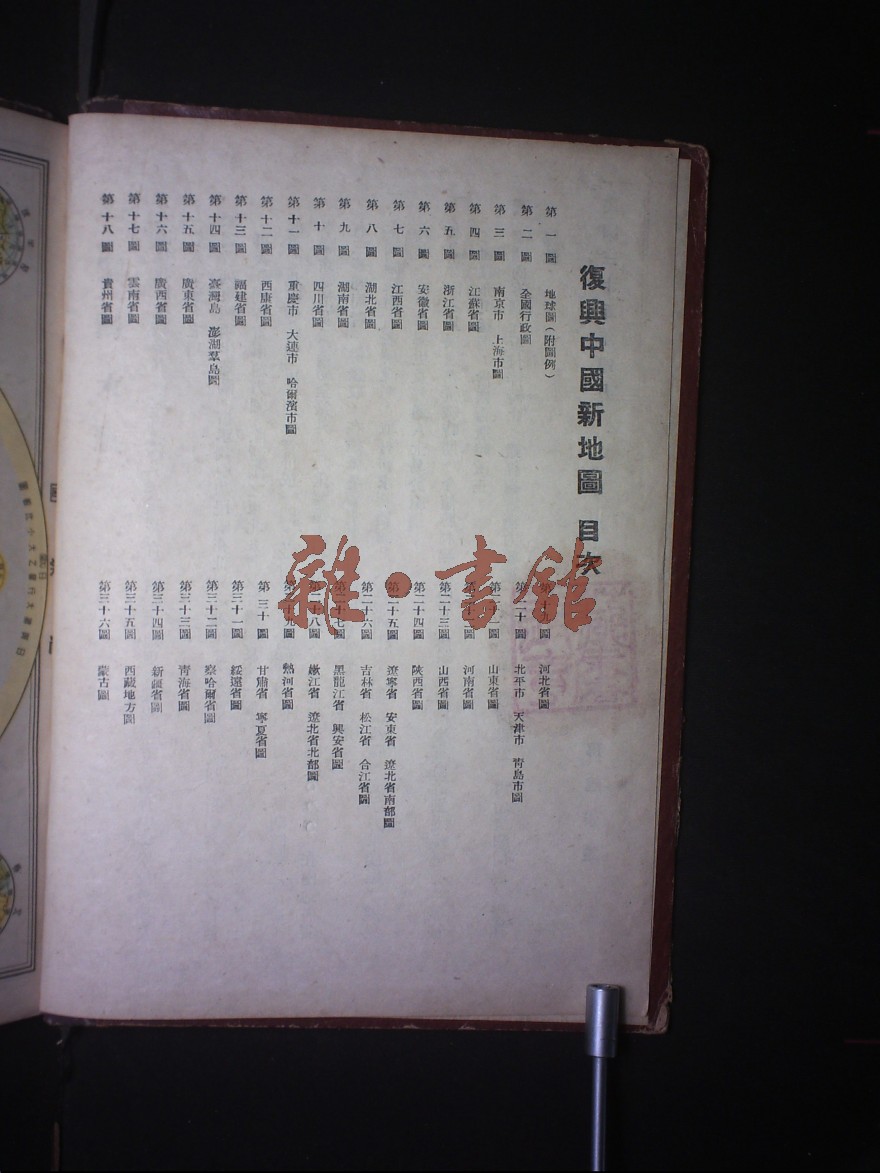 復興中國新地圖 目次
第一圖 地球圖(附圖例)
第二圖 全國行政圖
第三圖 南京市 上海市圖
第四圖 江蘇省圖
第五圖 浙江省圖
第六圖 安徽省圖
第七圖 江西省圖
第八圖 湖北省圖
第九圖 湖南省圖
第十圖 四川省圖
第十一圖 重慶市 大連市 哈爾濱市圖
第十二圖 西康省圖
第十三圖 福建省圖
第十四圖 臺灣島 澎湖羣島圖
第十五圖 廣東省圖
第十六圖 廣西省圖
第十七圖 雲南省圖
第十八圖 貴州省圖
河北省圖
第二十圖 北平市 天津市 青島市圖
河南省圖
山東省圖
第二十三圖 山西省圖
第二十四圖 陝西省圖
第二十五圖 遼寧省 安東省 遼北省南部圖
第二十六圖 吉林省 松江省 合江省圖
第二十七圖 黑龍江省 興安省圖
第二十八圖 嫩江省 遼北省北部圖
第二十九圖 熱河省圖
第三十圖 甘肅省 寧夏省圖
第三十一圖 綏遠省圖
第三十二圖 察哈爾省圖
第三十三圖 青海省圖
第三十四圖 新疆省圖
第三十五圖 西藏地方圖
第三十六圖 蒙古圖
雜·書館